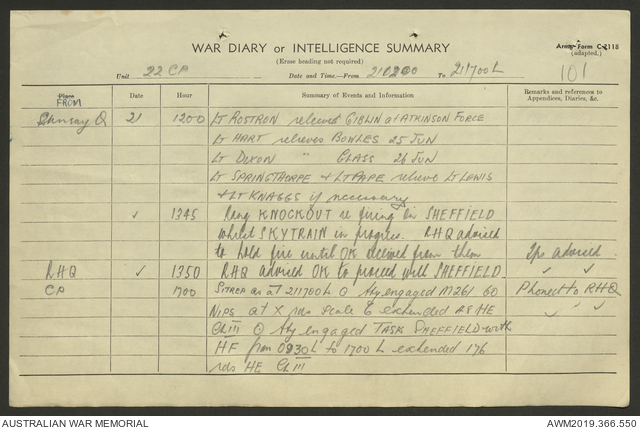 WAR DIARY or INTELLIGENCE SUMMARY
Army Form C.2118
(adapted.)
(Erase heading not required)
Unit 22 CP Date and Time.—From 210200 To 211700L 101
Place Date Hour Summary of Events and Information Remarks and references to Appendices, Diaries, &c.
FROM
Q 21 1200 Lt ROSTRON relieved GIBLIN at ATKINSON FORCE
Lt HART relieves BOWLES 25 JUN
Lt DIXON " GLASS 26 JUN
Lt SPRINGTHORPE & Lt PAPE relieve Lt LEWIS
& Lt KNAGGS if necessary
✓ 1345 Rang KNOCKOUT re firing in SHEFFIELD
whilst SKYTRAIN in progress. RHQ advised
to hold fire until OK received from them Tps advised
RHQ ✓ 1350 RHQ advised OK to proceed with SHEFFIELD ✓ ✓
CP 1700 SITREP as at 211700L Q Bty engaged M261 60 Phoned to RHQ
Nips at X rds scale 6 expended 28 HE ✓ " ✓
Ch III Q Bty engaged TASK SHEFFIELD with
HF from 0930L to 1700L expended 176
rds HE Ch III
AUSTRALIAN WAR MEMORIAL
AWM2019.366.550